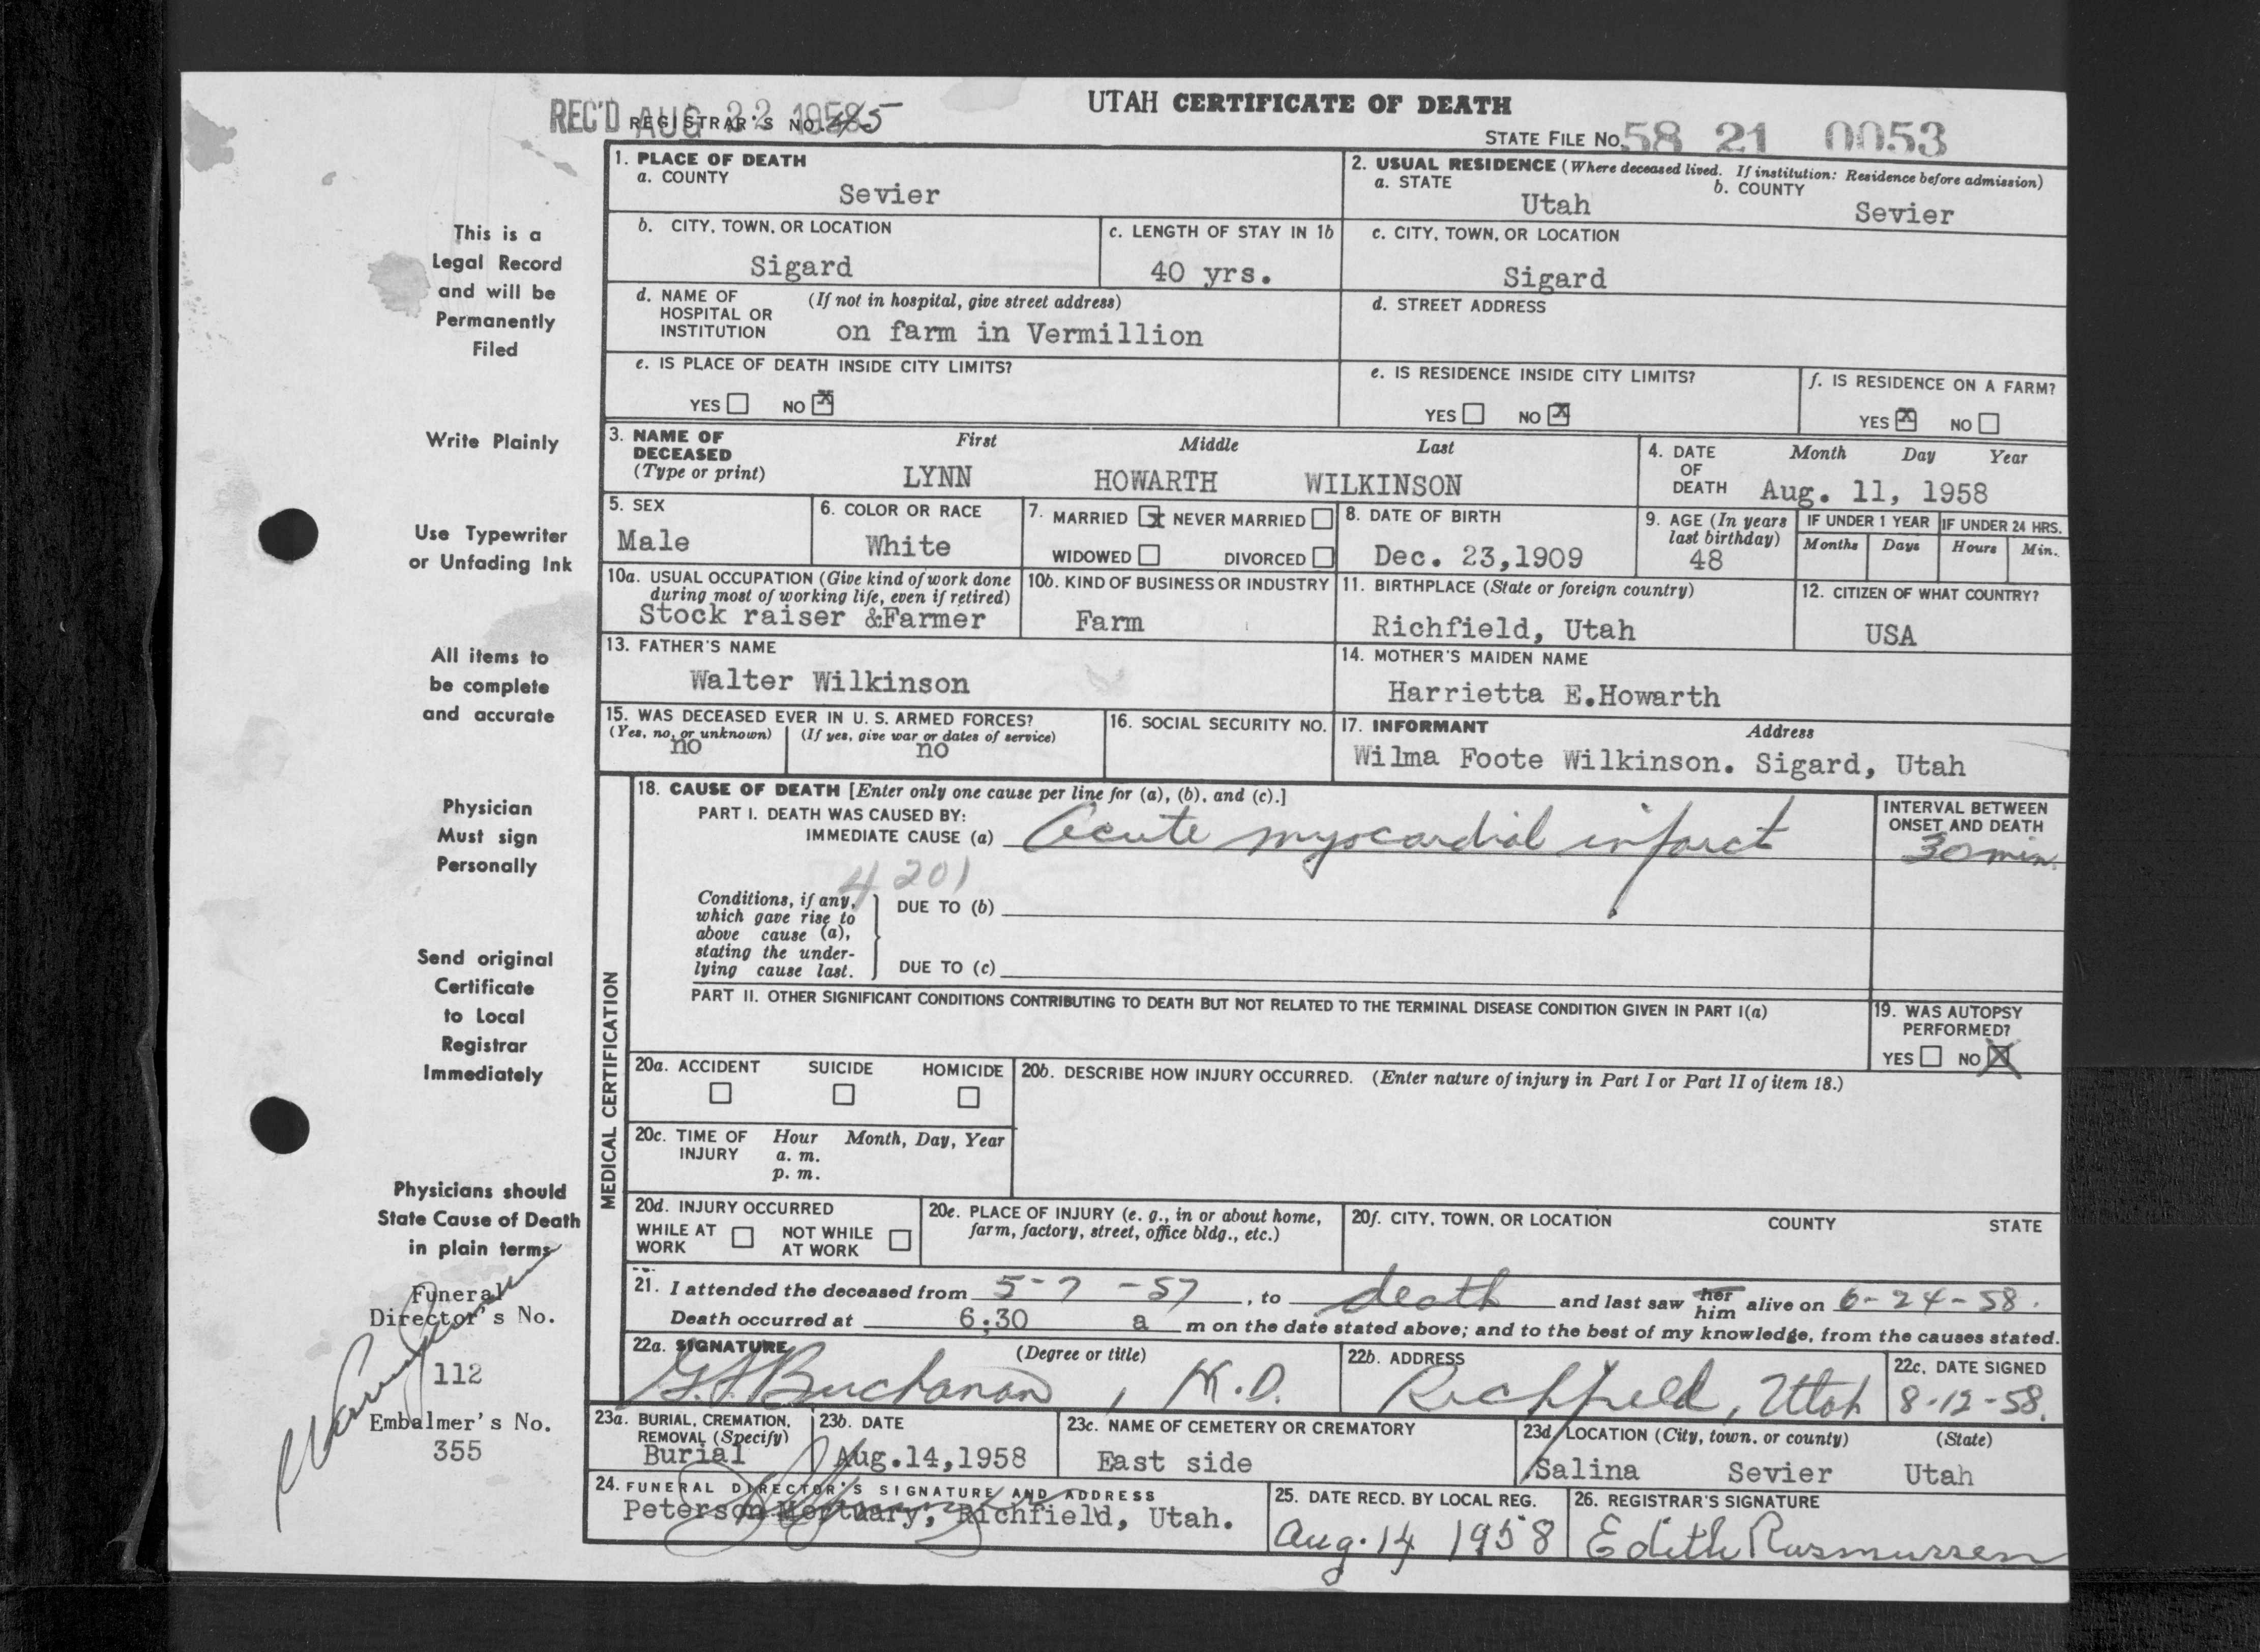 UTAH CERTIFICATE OF DEATH
REC'D AUG 22 1958
REGISTRAR'S NO. 45
STATE FILE No. 58 21 0053
This is a
Legal Record
and will be
Permanently
Filed
Write Plainly
Use Typewriter
or Unfading Ink
All items to
be complete
and accurate
Physician
Must sign
Personally
Send original
Certificate
to Local
Registrar
Immediately
Physicians should
State Cause of Death
in plain terms
Funeral
Director's No.
112
Embalmer's No.
355
1. PLACE OF DEATH
a. COUNTY
Sevier
2. USUAL RESIDENCE (Where deceased lived. If institution: Residence before admission)
a. STATE b. COUNTY
Utah Sevier
b. CITY, TOWN, OR LOCATION
Sigard
c. LENGTH OF STAY IN 1b
40 yrs.
c. CITY, TOWN, OR LOCATION
Sigard
d. NAME OF (If not in hospital, give street address)
HOSPITAL OR
INSTITUTION on farm in Vermillion
d. STREET ADDRESS
e. IS PLACE OF DEATH INSIDE CITY LIMITS?
YES NO X
e. IS RESIDENCE INSIDE CITY LIMITS?
YES NO X
f. IS RESIDENCE ON A FARM?
YES X NO
3. NAME OF First Middle Last
DECEASED
(Type or print) LYNN HOWARTH WILKINSON
4. DATE Month Day Year
OF
DEATH Aug. 11, 1958
5. SEX
Male
6. COLOR OR RACE
White
7. MARRIED X NEVER MARRIED
WIDOWED DIVORCED
8. DATE OF BIRTH
Dec. 23,1909
9. AGE (In years
last birthday)
48
IF UNDER 1 YEAR IF UNDER 24 HRS.
Months Days Hours Min.
10a. USUAL OCCUPATION (Give kind of work done
during most of working life, even if retired)
Stock raiser &Farmer
10b. KIND OF BUSINESS OR INDUSTRY
Farm
11. BIRTHPLACE (State or foreign country)
Richfield, Utah
12. CITIZEN OF WHAT COUNTRY?
USA
13. FATHER'S NAME
Walter Wilkinson
14. MOTHER'S MAIDEN NAME
Harrietta E.Howarth
15. WAS DECEASED EVER IN U. S. ARMED FORCES?
(Yes, no, or unknown) (If yes, give war or dates of service)
no no
16. SOCIAL SECURITY NO.
17. INFORMANT Address
Wilma Foote Wilkinson. Sigard, Utah
MEDICAL CERTIFICATION
18. CAUSE OF DEATH [Enter only one cause per line for (a), (b), and (c).]
PART I. DEATH WAS CAUSED BY:
IMMEDIATE CAUSE (a) Acute myocardial infarct
INTERVAL BETWEEN
ONSET AND DEATH
30 min.
4201
Conditions, if any,
which gave rise to
above cause (a),
stating the under-
lying cause last.
DUE TO (b)
DUE TO (c)
PART II. OTHER SIGNIFICANT CONDITIONS CONTRIBUTING TO DEATH BUT NOT RELATED TO THE TERMINAL DISEASE CONDITION GIVEN IN PART I(a)
19. WAS AUTOPSY
PERFORMED?
YES NO X
20a. ACCIDENT SUICIDE HOMICIDE
20b. DESCRIBE HOW INJURY OCCURRED. (Enter nature of injury in Part I or Part II of item 18.)
20c. TIME OF Hour Month, Day, Year
INJURY a. m.
p. m.
20d. INJURY OCCURRED
WHILE AT NOT WHILE
WORK AT WORK
20e. PLACE OF INJURY (e. g., in or about home,
farm, factory, street, office bldg., etc.)
20f. CITY, TOWN, OR LOCATION COUNTY STATE
21. I attended the deceased from 5-7-57, to death and last saw her him alive on 6-24-58.
Death occurred at 6:30 a m on the date stated above; and to the best of my knowledge, from the causes stated.
22a. SIGNATURE (Degree or title)
G.S. Buchanan, M.D.
22b. ADDRESS
Richfield, Utah
22c. DATE SIGNED
8-12-58.
23a. BURIAL, CREMATION,
REMOVAL (Specify)
Burial
23b. DATE
Aug.14,1958
23c. NAME OF CEMETERY OR CREMATORY
East side
23d. LOCATION (City, town, or county) (State)
Salina Sevier Utah
24. FUNERAL DIRECTOR'S SIGNATURE AND ADDRESS
Peterson Mortuary, Richfield, Utah.
25. DATE RECD. BY LOCAL REG.
Aug. 14 1958
26. REGISTRAR'S SIGNATURE
Edith Rasmussen